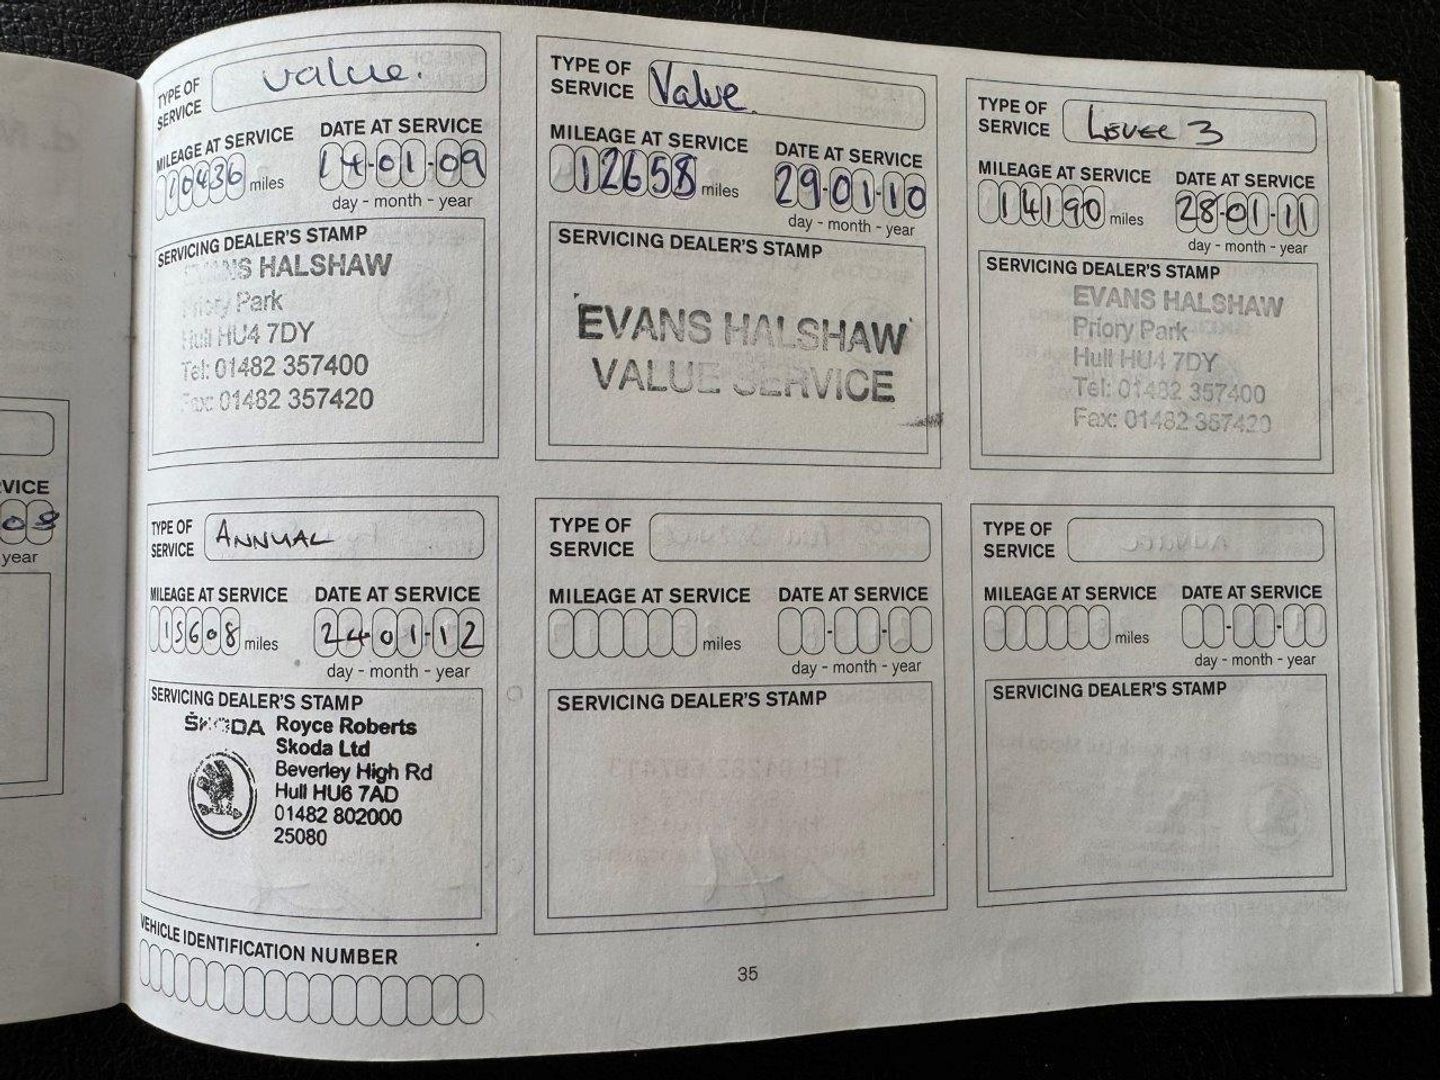 VICE
08
year
TYPE OF SERVICE value.
MILEAGE AT SERVICE DATE AT SERVICE
10436 miles 14-01-09
day - month - year
SERVICING DEALER'S STAMP
EVANS HALSHAW
Priory Park
Hull HU4 7DY
Tel: 01482 357400
Fax: 01482 357420
TYPE OF SERVICE Value.
MILEAGE AT SERVICE DATE AT SERVICE
12658 miles 29-01-10
day - month - year
SERVICING DEALER'S STAMP
EVANS HALSHAW
VALUE SERVICE
TYPE OF SERVICE LEVEL 3
MILEAGE AT SERVICE DATE AT SERVICE
14190 miles 28-01-11
day - month - year
SERVICING DEALER'S STAMP
EVANS HALSHAW
Priory Park
Hull HU4 7DY
Tel: 01482 357400
Fax: 01482 357420
TYPE OF SERVICE ANNUAL
MILEAGE AT SERVICE DATE AT SERVICE
15608 miles 24-01-12
day - month - year
SERVICING DEALER'S STAMP
ŠKODA Royce Roberts
Skoda Ltd
Beverley High Rd
Hull HU6 7AD
01482 802000
25080
TYPE OF SERVICE
MILEAGE AT SERVICE DATE AT SERVICE
miles - -
day - month - year
SERVICING DEALER'S STAMP
TYPE OF SERVICE
MILEAGE AT SERVICE DATE AT SERVICE
miles - -
day - month - year
SERVICING DEALER'S STAMP
VEHICLE IDENTIFICATION NUMBER
35